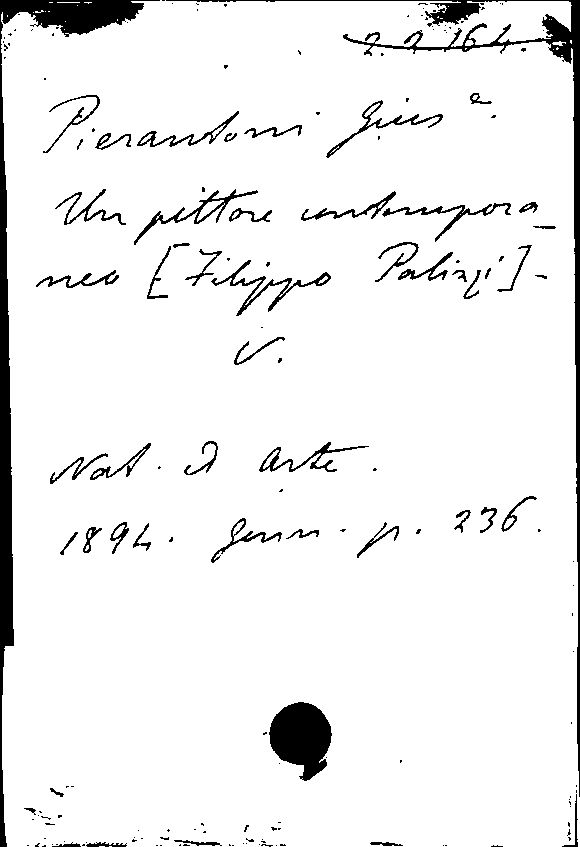 2.2.164.
Pierantoni Gius^e.
Un pittore contempora_
neo [Filippo Palizzi]-
V.
Nat. ed Arte.
1894. Genn. p. 236.